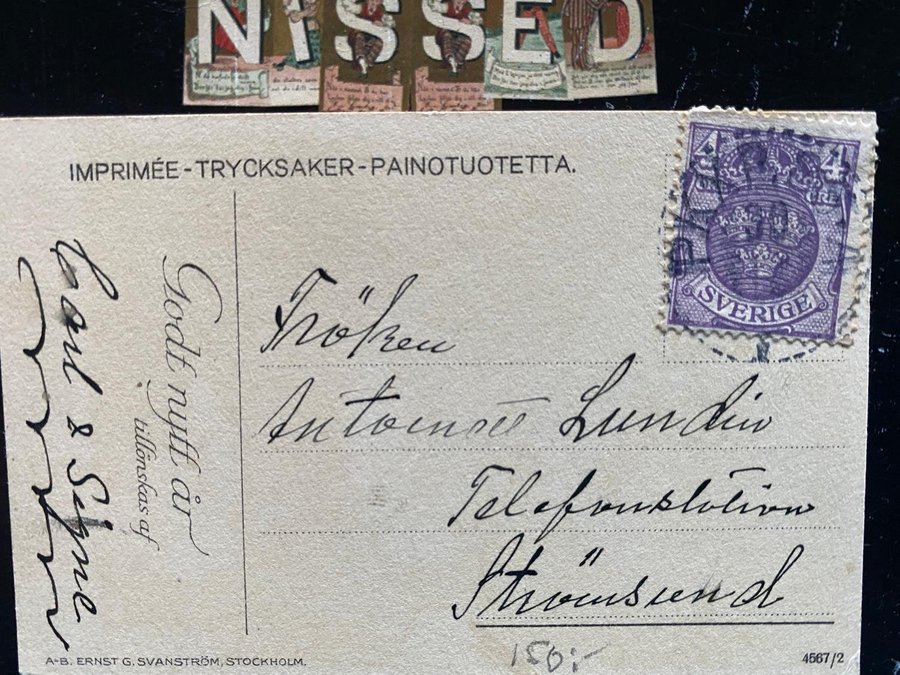 NISSED
IMPRIMÉE-TRYCKSAKER-PAINOTUOTETTA.
4 4
ÖRE
SVERIGE
Godt nytt år
tillönskas af
Carl & Signe
Fröken
Antoinett Lundin
Telefonstation
Strömsund
A-B. ERNST G. SVANSTRÖM, STOCKHOLM.
150:-
4567/2